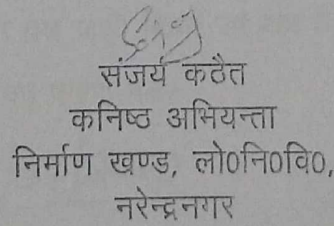 संजय कठैत
कनिष्ठ अभियन्ता
निर्माण खण्ड, लो०नि०वि०,
नरेन्द्रनगर